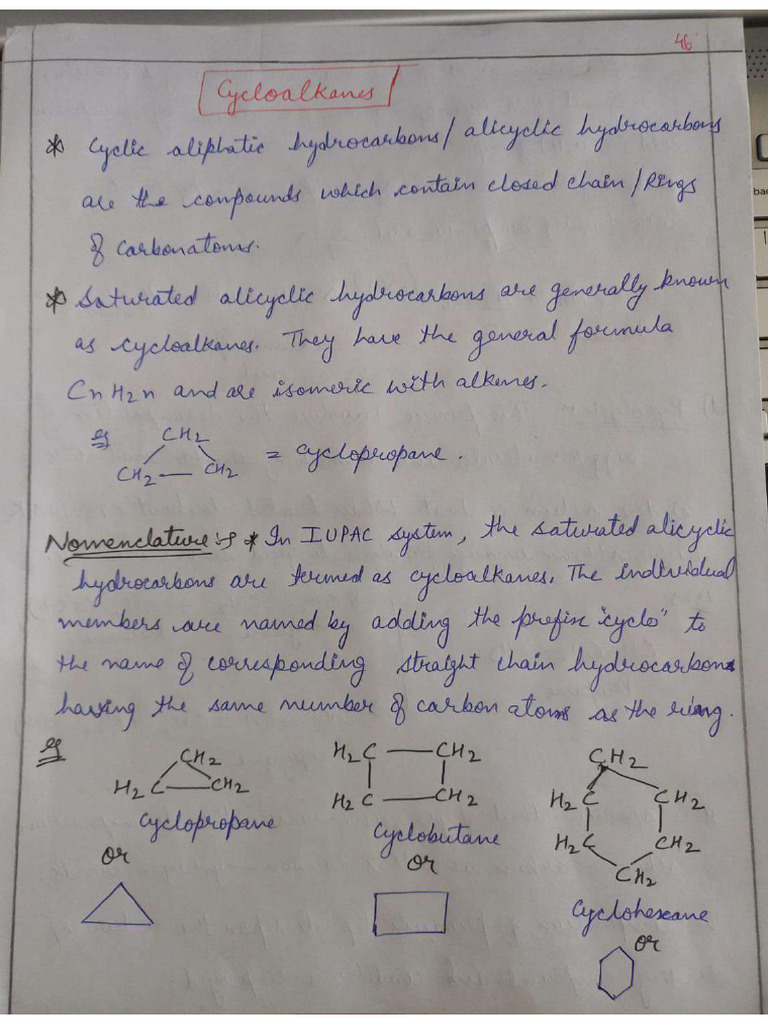 46
Cycloalkanes
* Cyclic aliphatic hydrocarbons/ alicyclic hydrocarbons
are the compounds which contain closed chain/Rings
of carbonatoms.
* Saturated alicyclic hydrocarbons are generally known
as cycloalkanes. They have the general formula
CnH2n and are isomeric with alkenes.
eg CH2
CH2 — CH2 = cyclopropane.
Nomenclature :- * In IUPAC system, the saturated alicyclic
hydrocarbons are termed as cycloalkanes. The individual
members are named by adding the prefix "cyclo" to
the name of corresponding straight chain hydrocarbons
having the same number of carbon atoms as the ring.
eg
CH2
H2C — CH2
Cyclopropane
or
H2C — CH2
H2C — CH2
Cyclobutane
or
CH2
H2C CH2
H2C CH2
CH2
Cyclohexane
or